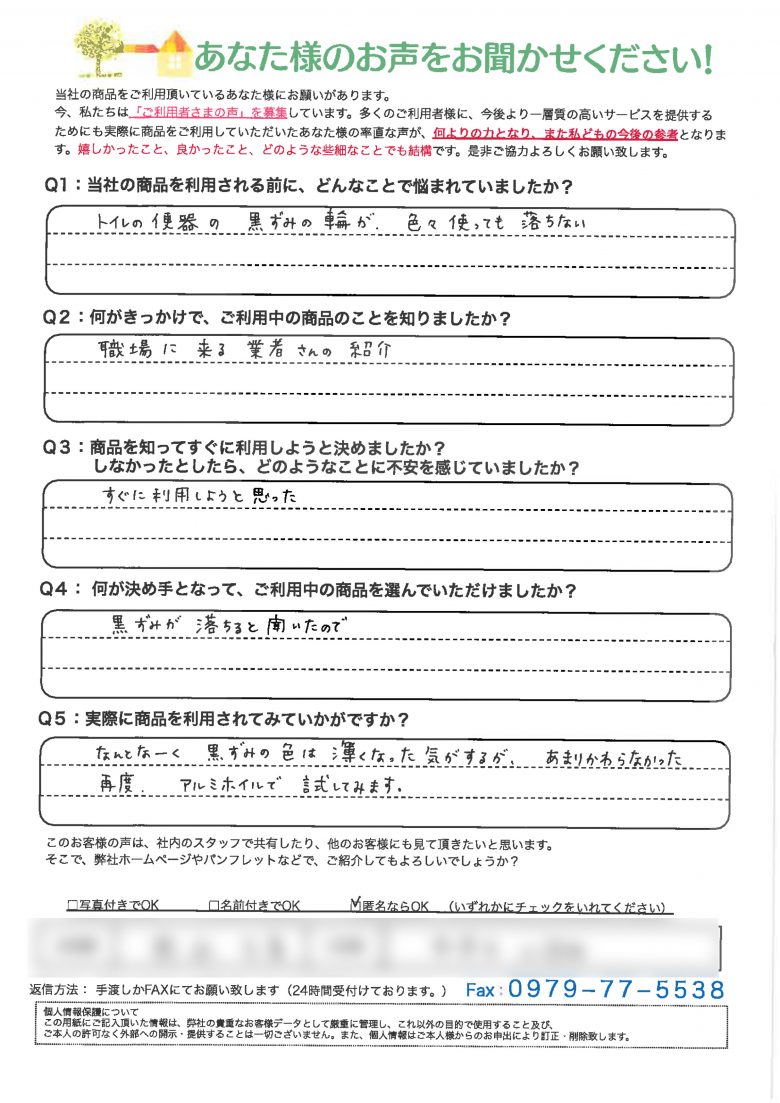 あなた様のお声をお聞かせください!
当社の商品をご利用頂いているあなた様にお願いがあります。
今、私たちは「ご利用者さまの声」を募集しています。多くのご利用者様に、今後より一層質の高いサービスを提供する
ためにも実際に商品をご利用していただいたあなた様の率直な声が、何よりの力となり、また私どもの今後の参考となりま
す。嬉しかったこと、良かったこと、どのような些細なことでも結構です。是非ご協力よろしくお願い致します。
Q1：当社の商品を利用される前に、どんなことで悩まれていましたか？
トイレの便器の 黒ずみの輪が、色々使っても 落ちない
Q2：何がきっかけで、ご利用中の商品のことを知りましたか？
職場に 来る 業者さんの 紹介
Q3：商品を知ってすぐに利用しようと決めましたか？
しなかったとしたら、どのようなことに不安を感じていましたか？
すぐに利用しようと思った
Q4： 何が決め手となって、ご利用中の商品を選んでいただけましたか？
黒ずみが 落ちると聞いたので
Q5：実際に商品を利用されてみていかがですか？
なんとなーく 黒ずみの色は 薄くなった気がするが、あまりかわらなかった
再度、アルミホイルで 試してみます。
このお客様の声は、社内のスタッフで共有したり、他のお客様にも見て頂きたいと思います。
そこで、弊社ホームページやパンフレットなどで、ご紹介してもよろしいでしょうか？
□写真付きでOK □名前付きでOK ☑匿名ならOK （いずれかにチェックをいれてください）
返信方法： 手渡しかFAXにてお願い致します（24時間受付けております。） Fax：0979-77-5538
個人情報保護について
この用紙にご記入頂いた情報は、弊社の貴重なお客様データとして厳重に管理し、これ以外の目的で使用すること及び、
ご本人の許可なく外部への開示・提供することは一切ございません。また、個人情報はご本人様からのお申出により訂正・削除致します。